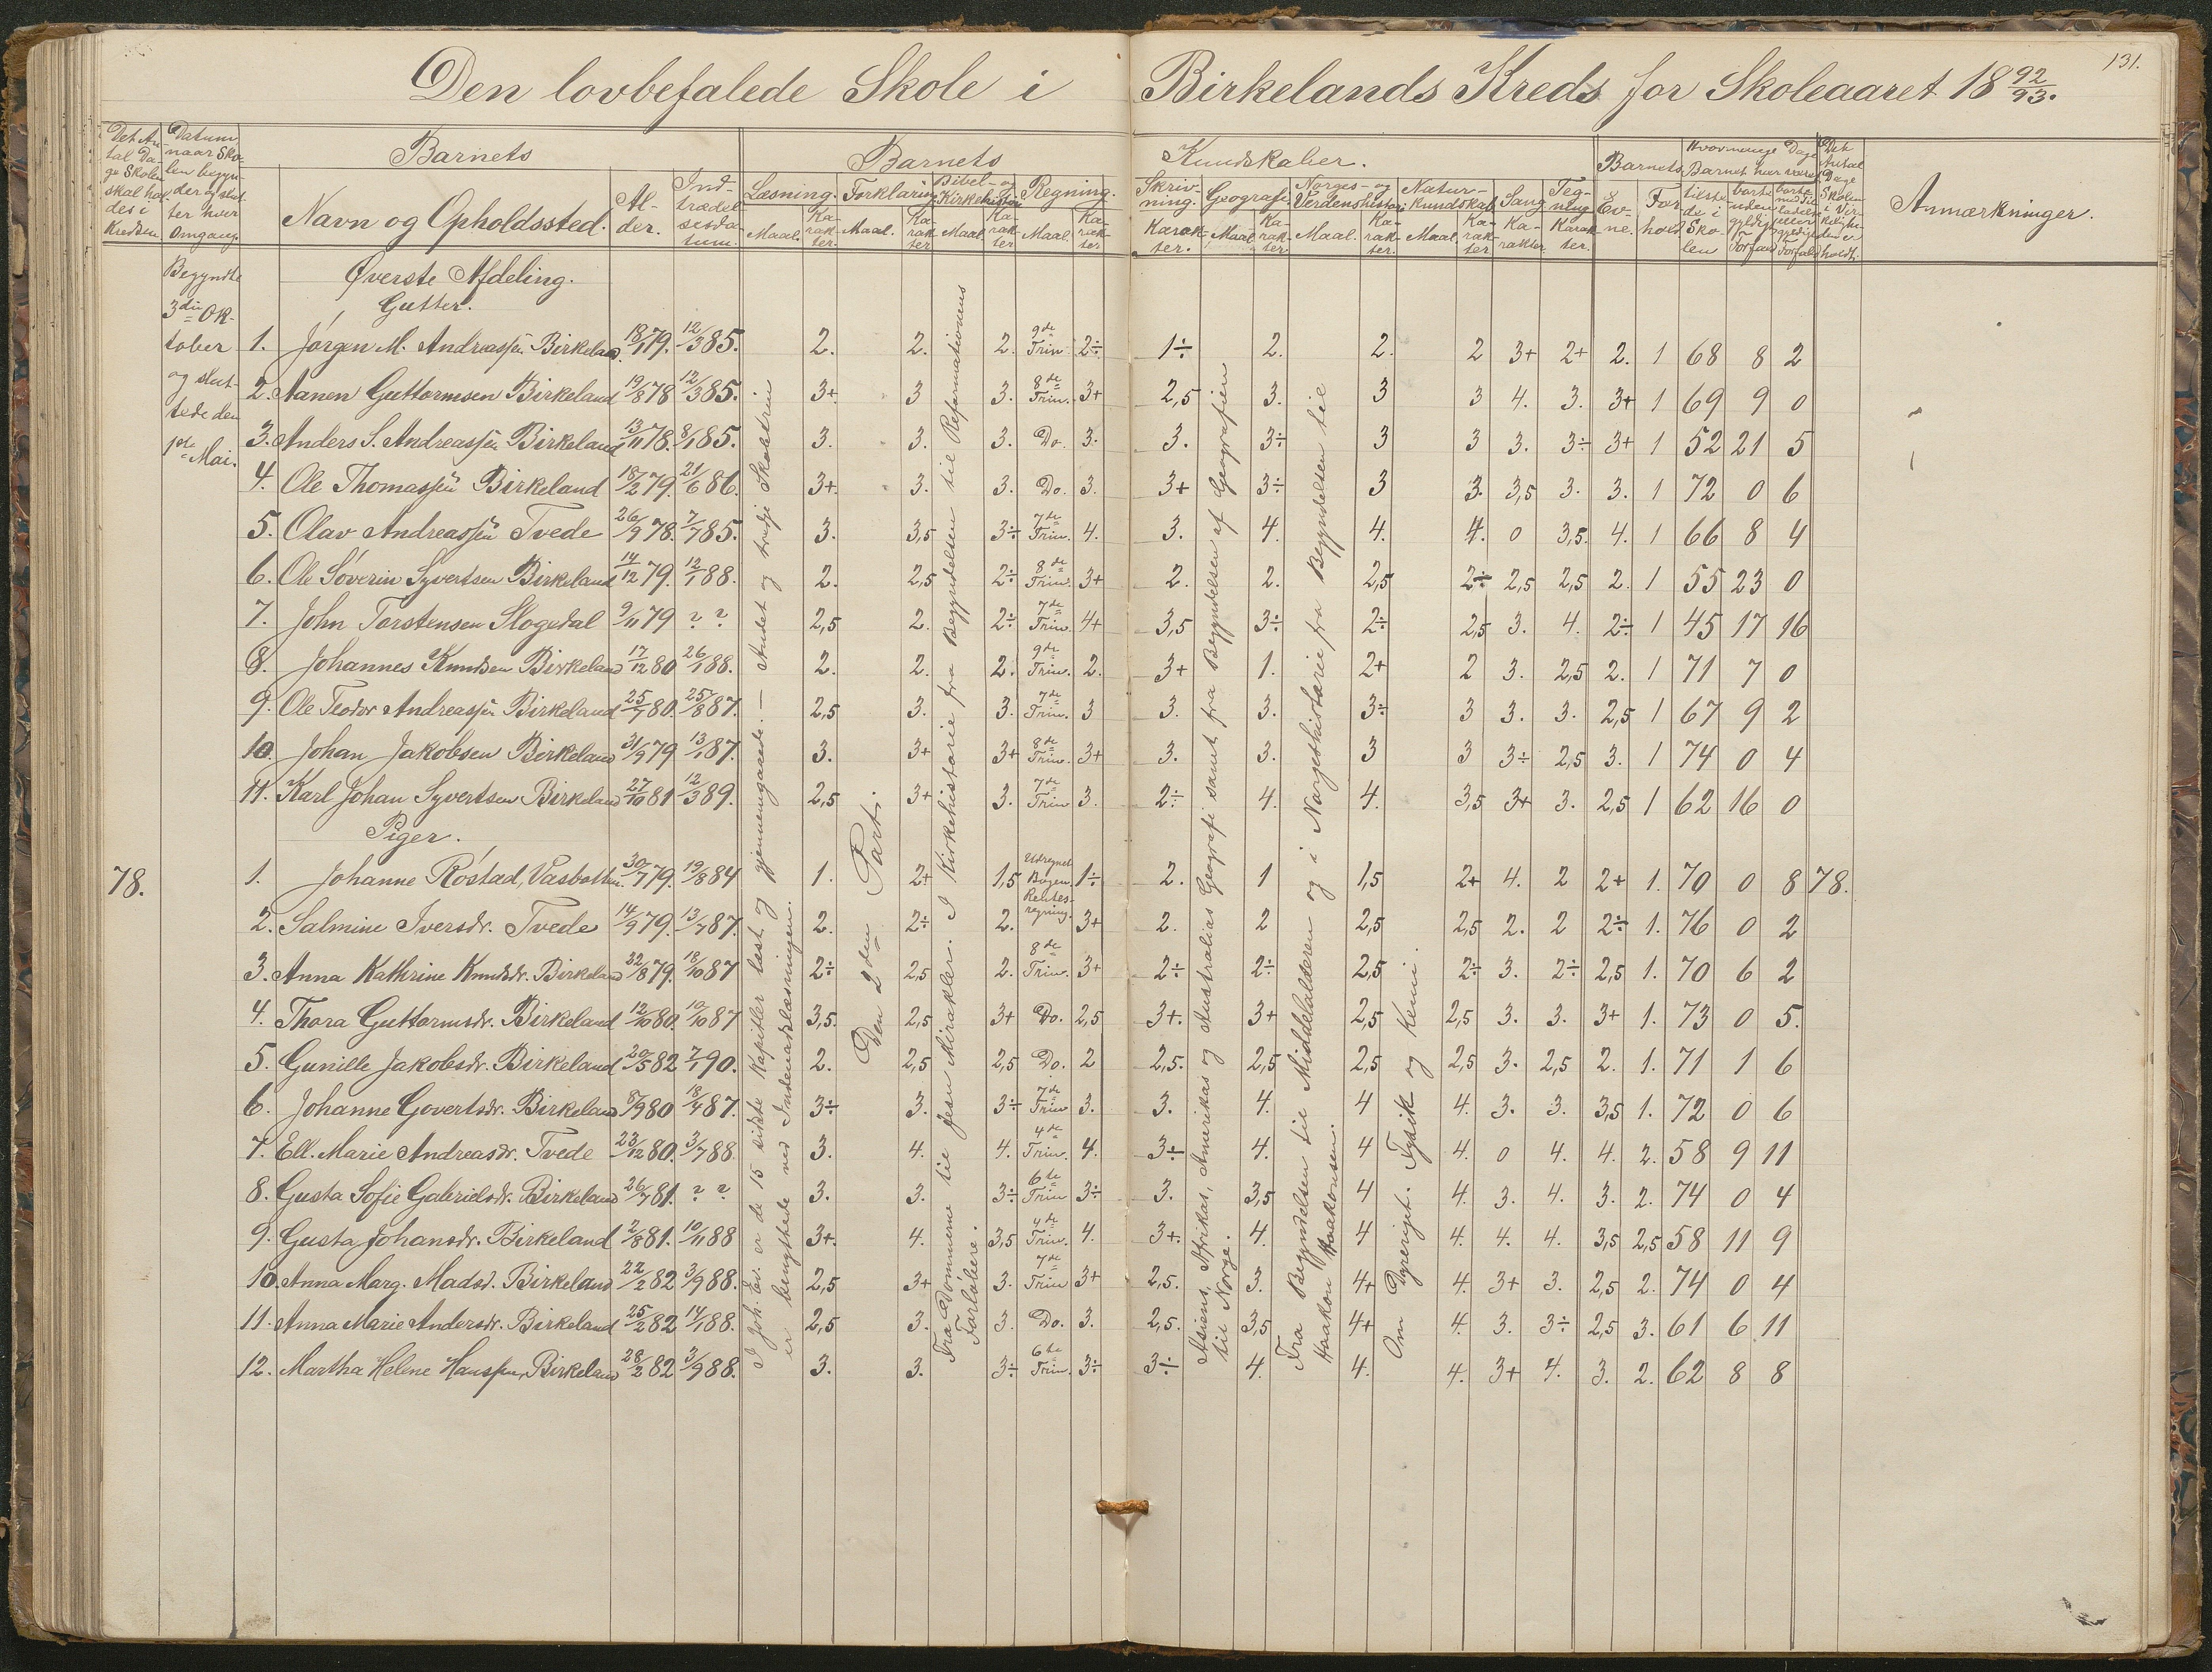 131.
Den lovbefalede Skole i Birkelands Kreds for Skoleaaret 18 92/93.
Det Antal Dage Skolen skal holdes i Kredsen. | Datum naar Skolen begynder og slutter hver Omgang. | Barnets | Barnets Kundskaber. | Barnets | Hvormange Dage Barnet har været | Det Antal Dage Skolen i Virkeligheden er holdt. | Anmærkninger.
Navn og Opholdssted. | Alder. | Indtrædelsesdatum. | Læsning. | Forklaring | Bibel- og Kirkehistorie | Regning. | Skrivning. | Geografi | Norges- og Verdenshistorie | Naturkundskab | Sang | Tegning | Evne. | Forhold | tilstede i Skolen | borte uden gyldigt Forfald | borte med Tilladelse eller gyldigt Forfald
Maal. Karakter. Maal. Karakter Maal. Karakter Maal. Karakter. Karakter. Maal Karakter Maal. Karakter. Maal Karakter Karakter Karakter.
Begyndte 3die Oktober og sluttede den 1ste Mai.
Øverste Afdeling.
Gutter.
1. Jørgen M. Andreassen Birkeland. 18/1 79. 12/3 85. 2. 2. 2. 9de Trin 2÷ 1÷ 2. 2. 2 3+ 2+ 2. 1 68 8 2
2. Aanen Guttormsen Birkeland 19/8 78 12/3 85. 3+ 3 3. 8de Trin. 3+ 2,5 3. 3 3 4. 3. 3+ 1 69 9 0
3. Anders S. Andreassen Birkeland 13/11 78. 8/1 85. 3. 3. 3. Do. 3. 3. 3÷ 3 3 3. 3÷ 3+ 1 52 21 5
4. Ole Thomassen Birkeland 18/2 79. 21/6 86. 3+. 3. 3. Do. 3. 3+ 3÷ 3 3. 3,5 3. 3. 1 72 0 6
5. Olav Andreassen Tvede 26/9 78. 7/7 85. 3. 3,5 3÷ 7de Trin. 4. 3. 4. 4. 4. 0 3,5. 4. 1 66 8 4
6. Ole Søverin Syvertsen Birkeland 14/12 79. 12/1 88. 2. 2,5 2÷ 8de Trin. 3+ 2. 2. 2,5 2÷ 2,5 2,5 2. 1 55 23 0
7. John Torstensen Slogedal 9/11 79 ? ? 2,5 2. 2÷ 7de Trin. 4+ 3,5 3÷ 2÷ 2,5 3. 4. 2÷ 1 45 17 16
8. Johannes Knudsen Birkeland 17/12 80 26/1 88. 2. 2. 2. 9de Trin. 2. 3+ 1. 2+ 2 3. 2,5 2. 1 71 7 0
9. Ole Teodor Andreassen Birkeland 25/7 80. 25/8 87. 2,5 3. 3. 7de Trin. 3 3. 3. 3÷ 3 3. 3. 2,5 1 67 9 2
10. Johan Jakobsen Birkeland 31/9 79 13/1 87. 3. 3+ 3+ 8de Trin. 3+ 3. 3. 3 3 3÷ 2,5 3. 1 74 0 4
11. Karl Johan Syvertsen Birkeland 27/10 81 12/3 89. 2,5 3+ 3. 7de Trin 3. 2÷ 4. 4. 3,5 3+ 3. 2,5 1 62 16 0
Piger.
78. 1. Johanne Røstad, Vasbotten. 30/7 79. 19/8 84 1. 2+ 1,5 Udregnet Bogen. 1÷ 2. 1 1,5 2+ 4. 2 2+ 1. 70 0 8 78.
2. Salmine Iversdr. Tvede 14/9 79. 13/7 87. 2. 2÷ 2. Rentesregning. 3+ 2. 2 2,5 2,5 2. 2 2÷ 1. 76 0 2
3. Anna Kathrine Knudsdr. Birkeland 22/8 79. 18/10 87 2÷ 2,5 2. 8de Trin. 3+ 2÷ 2÷ 2,5 2÷ 3. 2÷ 2,5 1. 70 6 2
4. Thora Guttormsdr. Birkeland 12/10 80. 10/10 87 3,5. 2,5 3+ Do. 2,5 3+. 3+ 2,5 2,5 3. 3. 3+ 1. 73 0 5.
5. Gunille Jakobsdr. Birkeland 20/5 82 7/1 90. 2. 2,5 2,5 Do. 2 2,5. 2,5 2,5 2,5 3. 2,5 2. 1. 71 1 6
6. Johanne Govertsdr. Birkeland 8/9 80 18/4 87. 3÷ 3. 3÷ 7de Trin 3. 3. 4. 4 4. 3. 3. 3,5 1. 72 0 6
7. Ell. Marie Andreasdr. Tvede 23/12 80. 3/7 88. 3. 4. 4. 4de Trin. 4. 3÷ 4. 4 4. 0 4. 4. 2. 58 9 11
8. Gusta Sofie Gabrielsdr. Birkeland 26/7 81. ? ? 3. 3. 3÷ 6te Trin 3÷ 3. 3,5 4 4. 3. 4. 3. 2. 74 0 4
9. Gusta Johansdr. Birkeland 2/8 81. 10/11 88 3+. 4. 3,5 4de Trin. 4. 3+. 4. 4 4. 4. 4. 3,5 2,5 58 11 9
10. Anna Marg. Madsd. Birkeland 22/2 82 3/9 88. 2,5 3+ 3. 7de Trin 3+ 2,5. 3. 4+ 4. 3+ 3. 2,5 2. 74 0 4
11. Anna Marie Andersdr. Birkeland 25/2 82 14/1 88. 2,5 3. 3. Do. 3. 2,5. 3,5 4+ 4. 3. 3÷ 2,5 3. 61 6 11
12. Martha Helene Hanssen, Birkeland 28/2 82 3/9 88. 3. 3. 3÷ 6te Trin. 3÷ 3÷ 4. 4. 4. 3+ 4. 3. 2. 62 8 8
I Joh. Ev. er de 15 sidste Kapitler læst og gjennemgaaede. — Andet og tredje Skoletrin
er benyttede ved Indenadslæsningen.
Den 2den Part.
Fra Dommerne til Jesu Mirakler. I Kirkehistorie fra Begyndelsen til Reformationens
Forløbere.
Asiens, Afrikas, Amerikas og Australias Geografi samt fra Begyndelsen af Geografien
til Norge.
Fra Begyndelsen til Middelalderen og i Norgeshistorie fra Begyndelsen til
Haakon Haakonsen.
Om Dyreriget. Fysik og Kemi.